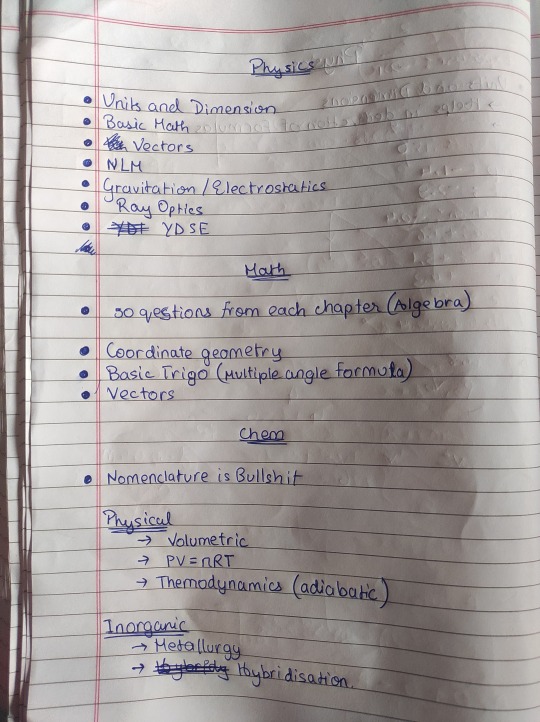 Physics
• Units and Dimension
• Basic Math
• Vectors
• NLM
• Gravitation / Electrostatics
• Ray Optics
• YDSE
Math
• 50 qestions from each chapter (Algebra)
• Coordinate geometry
• Basic Trigo (Multiple angle formula)
• Vectors
Chem
• Nomenclature is Bullshit
Physical
→ Volumetric
→ PV = nRT
→ Themodynamics (adiabatic)
Inorganic
→ Metallurgy
→ Hybridisation.